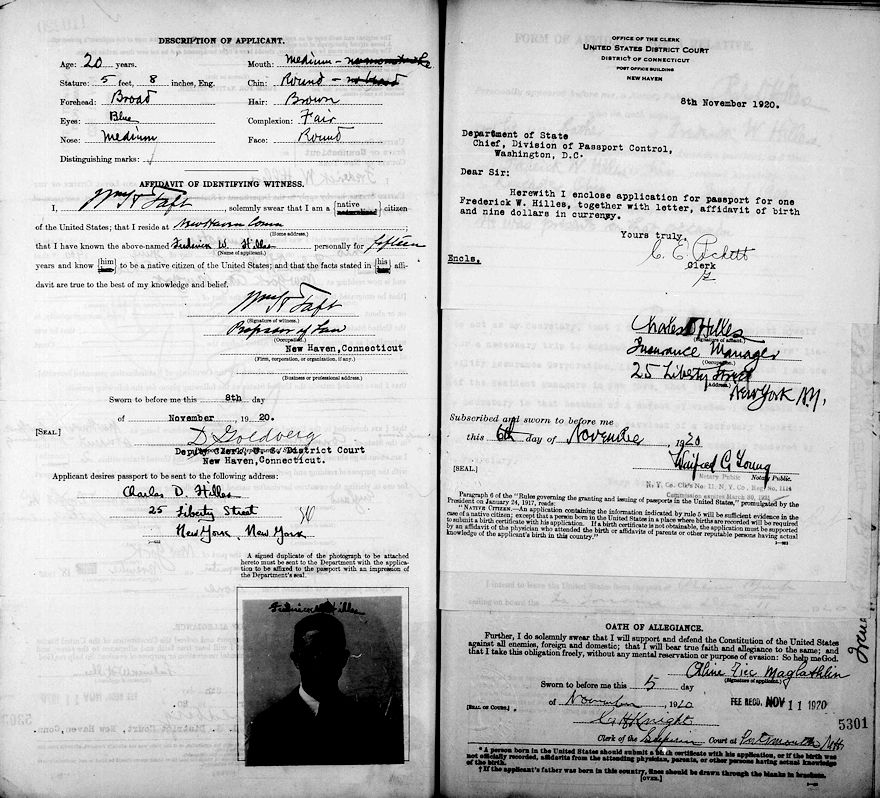 DESCRIPTION OF APPLICANT.
Age: 20 years.
Mouth: Medium –
Stature: 5 feet, 8 inches, Eng.
Chin: Round – no beard
Forehead: Broad
Hair: Brown
Eyes: Blue
Complexion: Fair
Nose: Medium
Face: Round
Distinguishing marks:
AFFIDAVIT OF IDENTIFYING WITNESS.
I, Wm H Taft, solemnly swear that I am a {native citizen
of the United States; that I reside at New Haven Conn;
(Home address.)
that I have known the above-named Frederick W. Hilles personally for fifteen
(Name of applicant.)
years and know {him} to be a native citizen of the United States; and that the facts stated in {his} affi-
davit are true to the best of my knowledge and belief.
Wm H Taft
(Signature of witness.)
Professor of Law
(Occupation.)
New Haven, Connecticut
(Firm, corporation, or organization, if any.)
(Business or professional address.)
Sworn to before me this 8th day
of November, 1920.
[SEAL]
D Goldberg
Deputy Clerk, U. S. District Court
New Haven, Connecticut.
Applicant desires passport to be sent to the following address:
Charles D. Hilles
25 Liberty Street
New York New York
A signed duplicate of the photograph to be attached
hereto must be sent to the Department with the applica-
tion to be affixed to the passport with an impression of
the Department's seal.
Frederick W. Hilles
OFFICE OF THE CLERK
UNITED STATES DISTRICT COURT
DISTRICT OF CONNECTICUT
POST OFFICE BUILDING
NEW HAVEN
8th November 1920.
Department of State
Chief, Division of Passport Control,
Washington, D.C.
Dear Sir:
Herewith I enclose application for passport for one
Frederick W. Hilles, together with letter, affidavit of birth
and nine dollars in currency.
Yours truly,
C. E. Pickett
Clerk
Encls.
Charles D Hilles
(Signature of affiant.)
Insurance Manager
(Occupation.)
25 Liberty Street
(Address.)
New York N.Y.
Subscribed and sworn to before me
this 6th day of November, 1920
Winifred G Young
[SEAL.]
Notary Public Notary Public.
N. Y. Co. Clk's No. 11 N. Y. Co. Reg. No. 1114
Commission expires March 30, 1921
Paragraph 6 of the "Rules governing the granting and issuing of passports in the United States," promulgated by the
President on January 24, 1917, reads:
"NATIVE CITIZEN.—An application containing the information indicated by rule 5 will be sufficient evidence in
case of a native citizen; except that a person born in the United States in a place where births are recorded will be required
to submit a birth certificate with his application. If a birth certificate is not obtainable, the application must be supported
by an affidavit of the physician who attended the birth or affidavits of parents or other reputable persons having actual
knowledge of the applicant's birth in this country."
OATH OF ALLEGIANCE.
Further, I do solemnly swear that I will support and defend the Constitution of the United States
against all enemies, foreign and domestic; that I will bear true faith and allegiance to the same; and
that I take this obligation freely, without any mental reservation or purpose of evasion: So help me God.
Maglathlin
(Signature of applicant.)
Sworn to before me this 5 day
of November 1920
FEE RECD. NOV 11 1920
[SEAL OF COURT.]
C H Knight
5301
Clerk of the Superior Court at Portsmouth NH
*A person born in the United States should submit a birth certificate with his application, or if the birth was
not officially recorded, affidavits from the attending physician, parents, or other persons having actual knowledge
of the birth.
†If the applicant's father was born in this country, lines should be drawn through the blanks in brackets.
[OVER.]